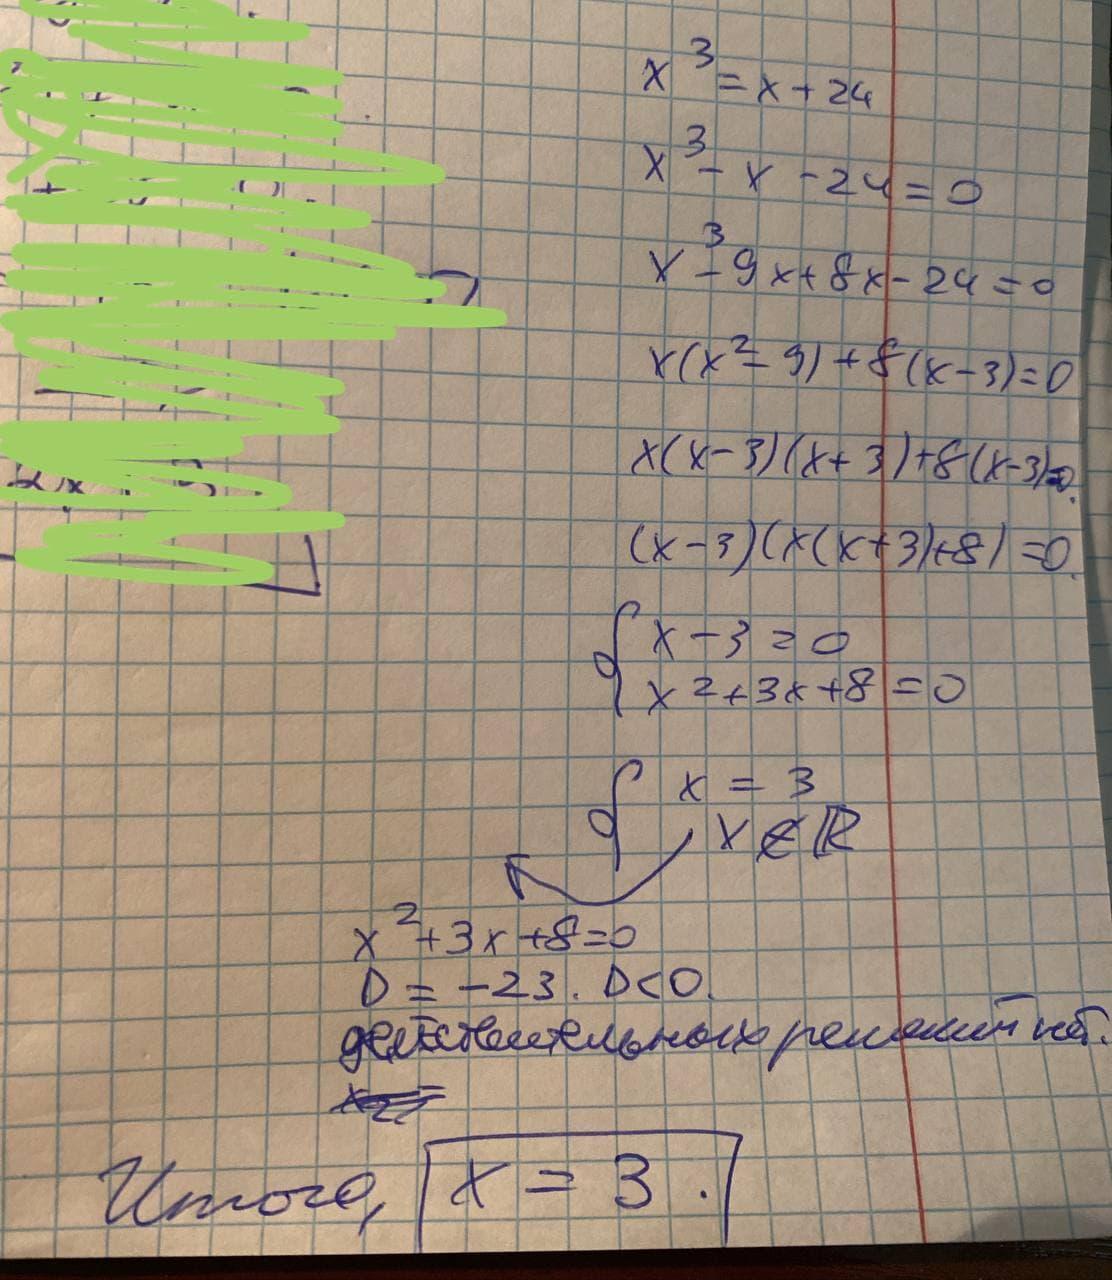 x³ = x + 24
x³ - x - 24 = 0
x³ - 9x + 8x - 24 = 0
x(x² - 9) + 8(x - 3) = 0
x(x-3)(x+3)+8(x-3)=0.
(x-3)(x(x+3)+8)=0.
{ x - 3 = 0
x² + 3x + 8 = 0
{ x = 3
x ∉ ℝ
x² + 3x + 8 = 0
D = -23. D<0.
действительных решений нет.
Итого, x = 3.